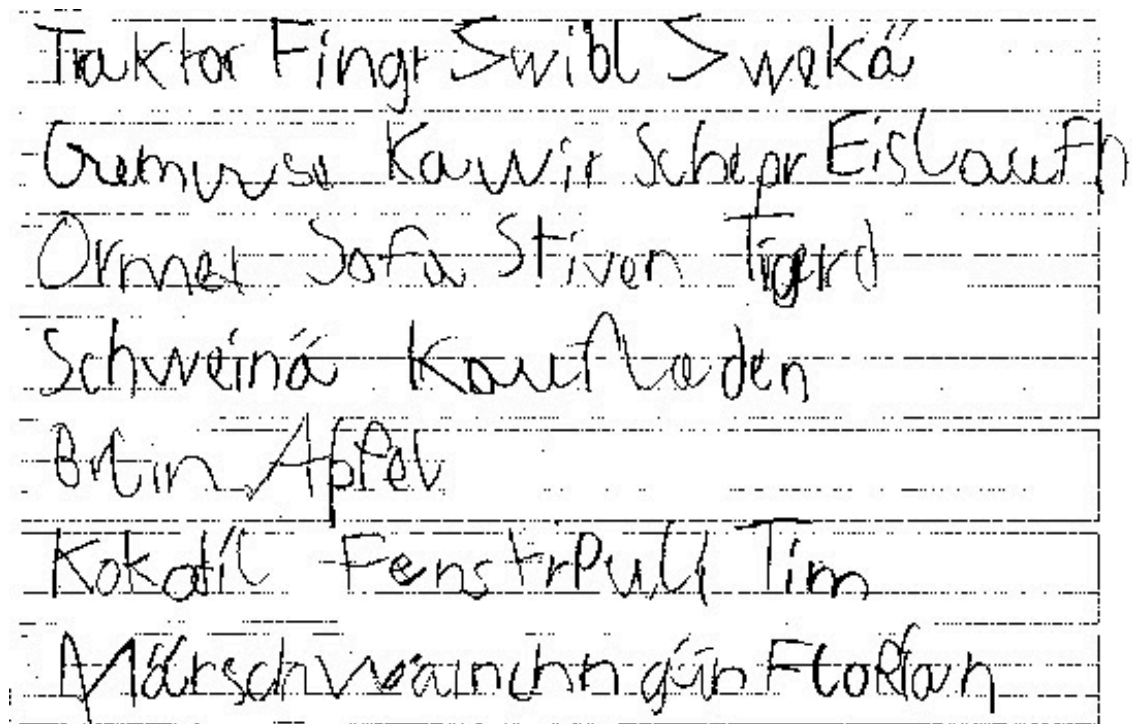 Traktor Fingr Swibl Swekä
Gemuse Kawir Schepr Eislaufn
Ormer Sofa Stiven Tigerd
Schweinä Kaufladen
Brlin Apfel
Kokodil Fenstr Pulli Tim
Märschwainchn gün Florian